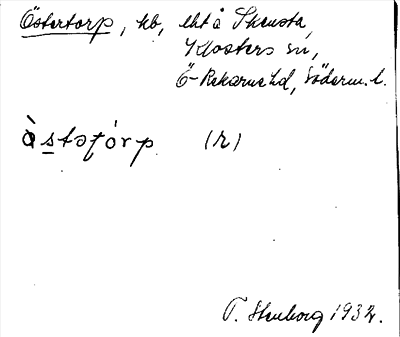 Östertorp, hb, eht å Skensta,
Klosters sn,
Ö-Rekarne hd, Söderm. l.
ò̀stәtọ́rp (r)
T. Stenborg 1932.